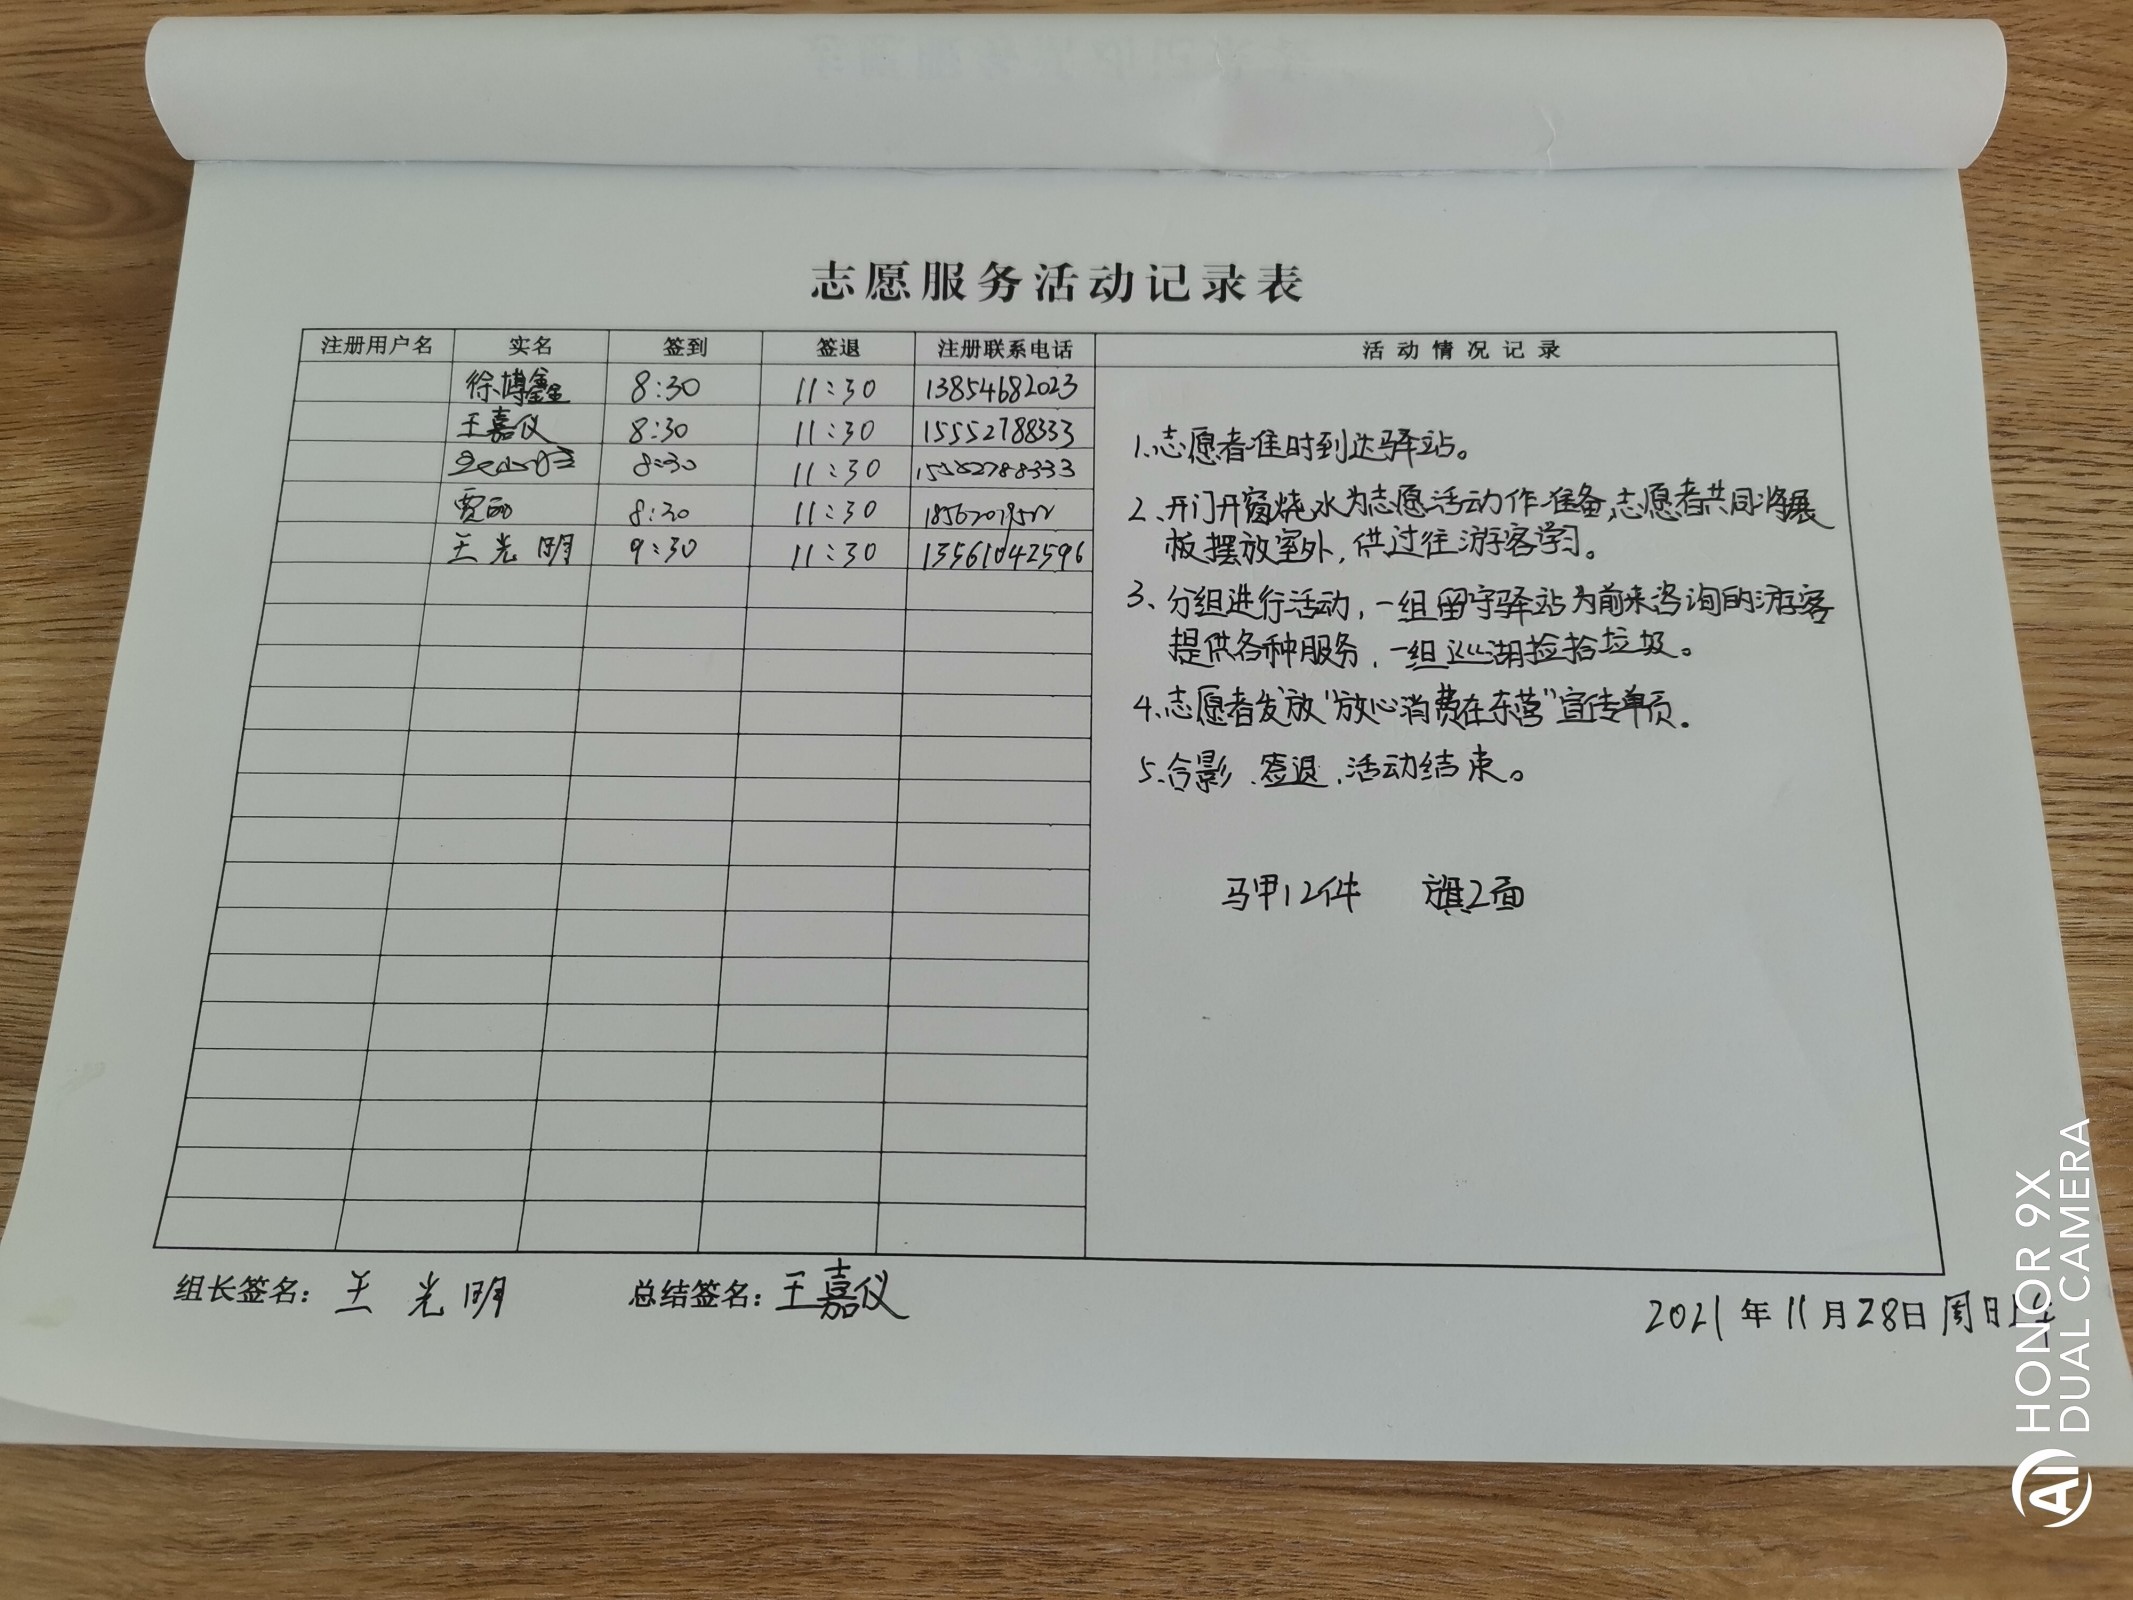 志愿服务活动记录表
注册用户名 实名 签到 签退 注册联系电话 活动情况记录
徐博鑫 8:30 11:30 13854682023
王嘉仪 8:30 11:30 15552788333
8:30 11:30 15552788333
贾丽 8:30 11:30
王光明 9:30 11:30 13561042596
1、志愿者准时到达驿站。
2、开门开窗烧水为志愿活动作准备,志愿者共同将展
板摆放室外,供过往游客学习。
3、分组进行活动,一组留守驿站为前来咨询的游客
提供各种服务,一组巡湖捡拾垃圾。
4、志愿者发放“放心消费在东营”宣传单页。
5、合影、签退,活动结束。
马甲12件 旗2面
组长签名:王光明 总结签名:王嘉仪
2021年11月28日周日上午
HONOR 9X
DUAL CAMERA
AI